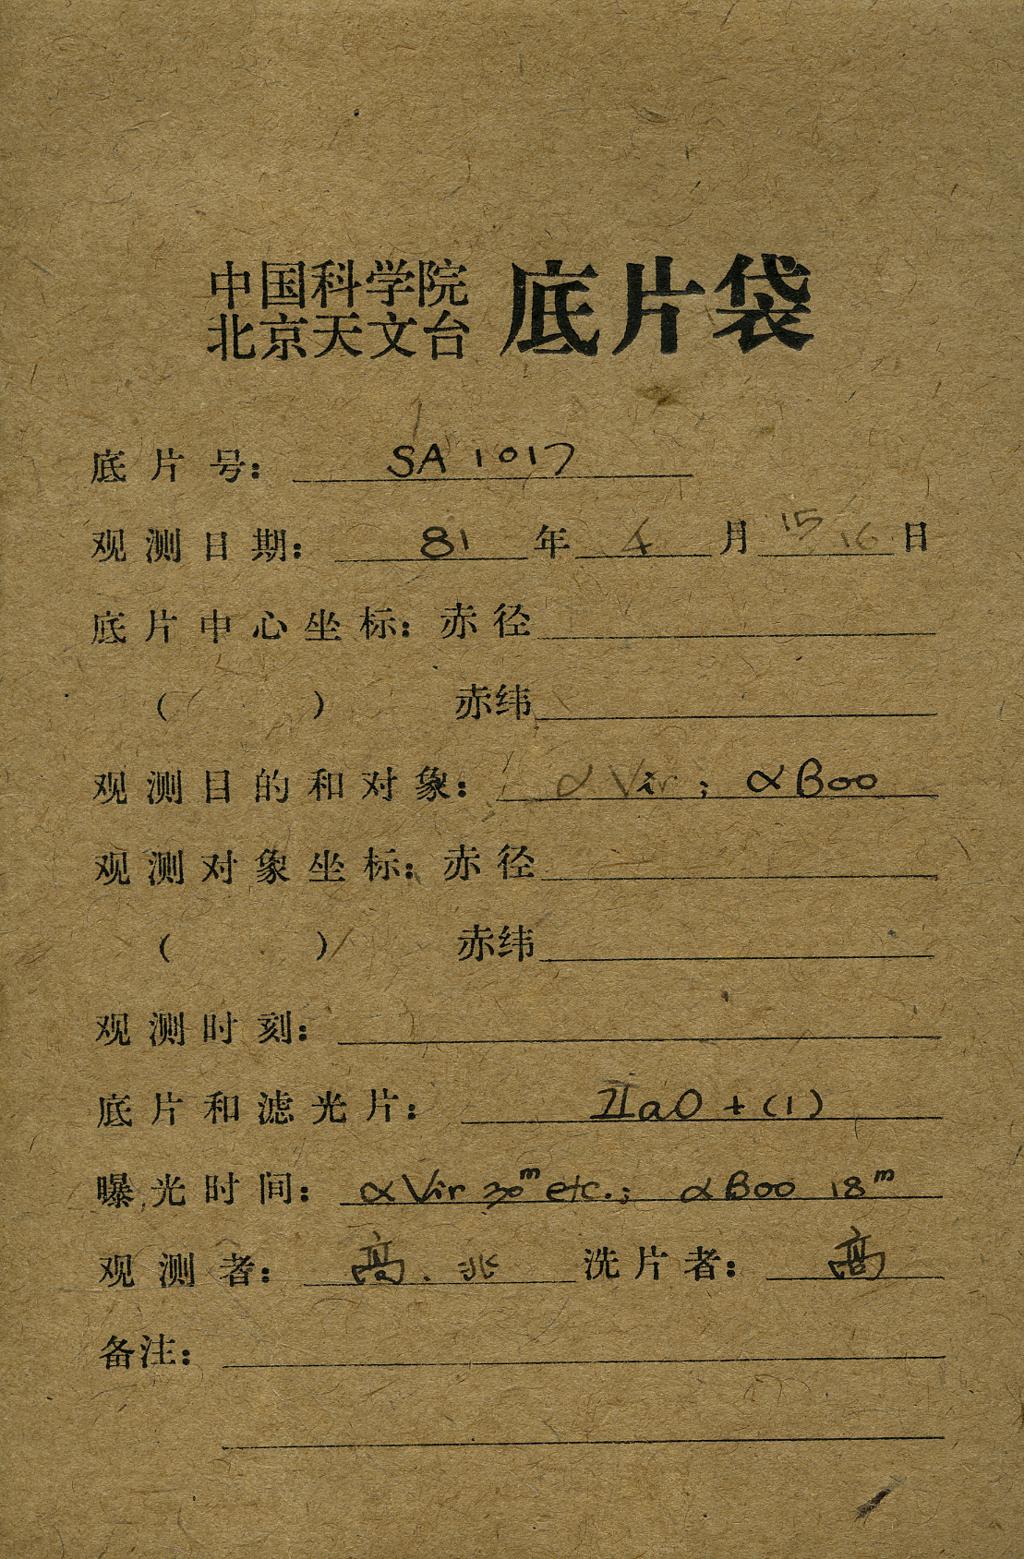 中国科学院
北京天文台 底片袋
底片号: SA 1017
观测日期: 81 年 4 月 15 16 日
底片中心坐标: 赤径
( ) 赤纬
观测目的和对象: α Vir ; α Boo
观测对象坐标: 赤径
( ) 赤纬
观测时刻:
底片和滤光片: IIaO + (1)
曝光时间: α Vir 30ᵐ etc.; α Boo 18ᵐ
观测者: 高. 兆 洗片者: 高
备注: